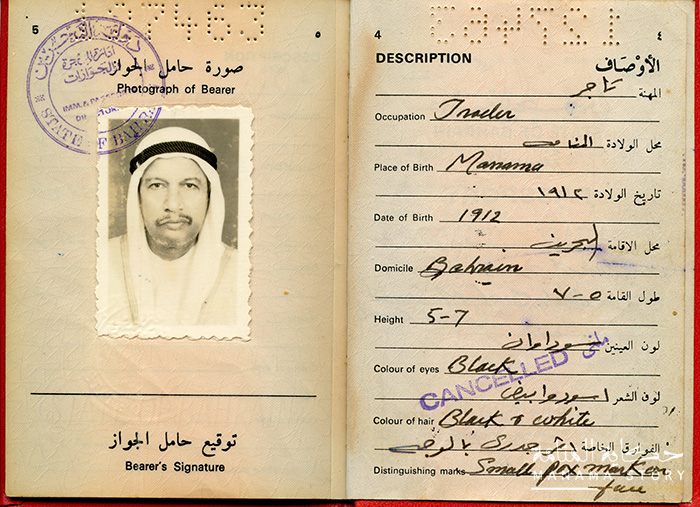 5
٥
دولة البحرين
إدارة الهجرة والجوازات
STATE OF BAHRAIN
صورة حامل الجواز
Photograph of Bearer
توقيع حامل الجواز
Bearer's Signature
4
٤
DESCRIPTION
الأوصاف
المهنة تاجر
Occupation Trader
محل الولادة المنامه
Place of Birth Manama
تاريخ الولادة ١٩١٢
Date of Birth 1912
محل الاقامة البحرين
Domicile Bahrain
طول القامة ٥-٧
Height 5-7
لون العينين سوداوان
Colour of eyes Black
CANCELLED ملغى
لون الشعر اسود وابيض
Colour of hair Black & white
الفوارق الخاصة اثر جدري بالوجه
Distinguishing marks Small pox mark on
face
MANAMA STORY